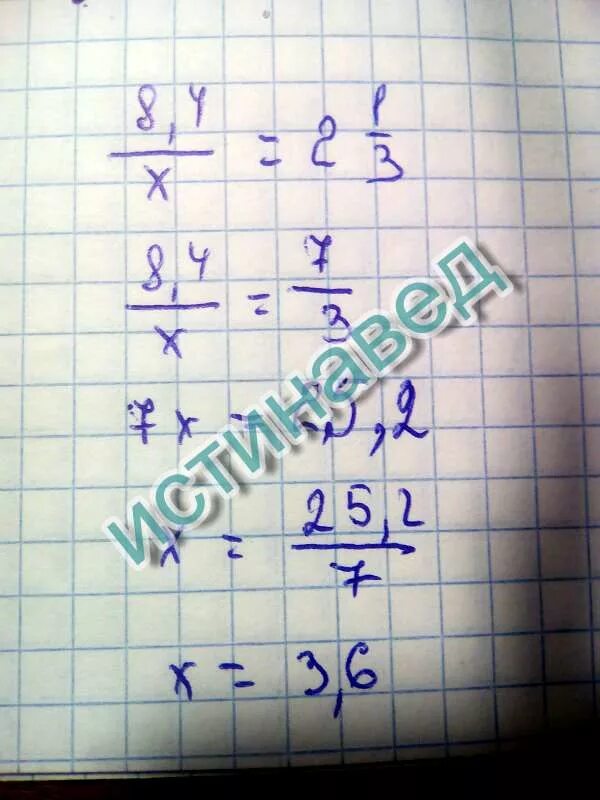 8,4/x = 2 1/3
8,4/x = 7/3
7x = 25,2
x = 25,2/7
x = 3,6
истинавед